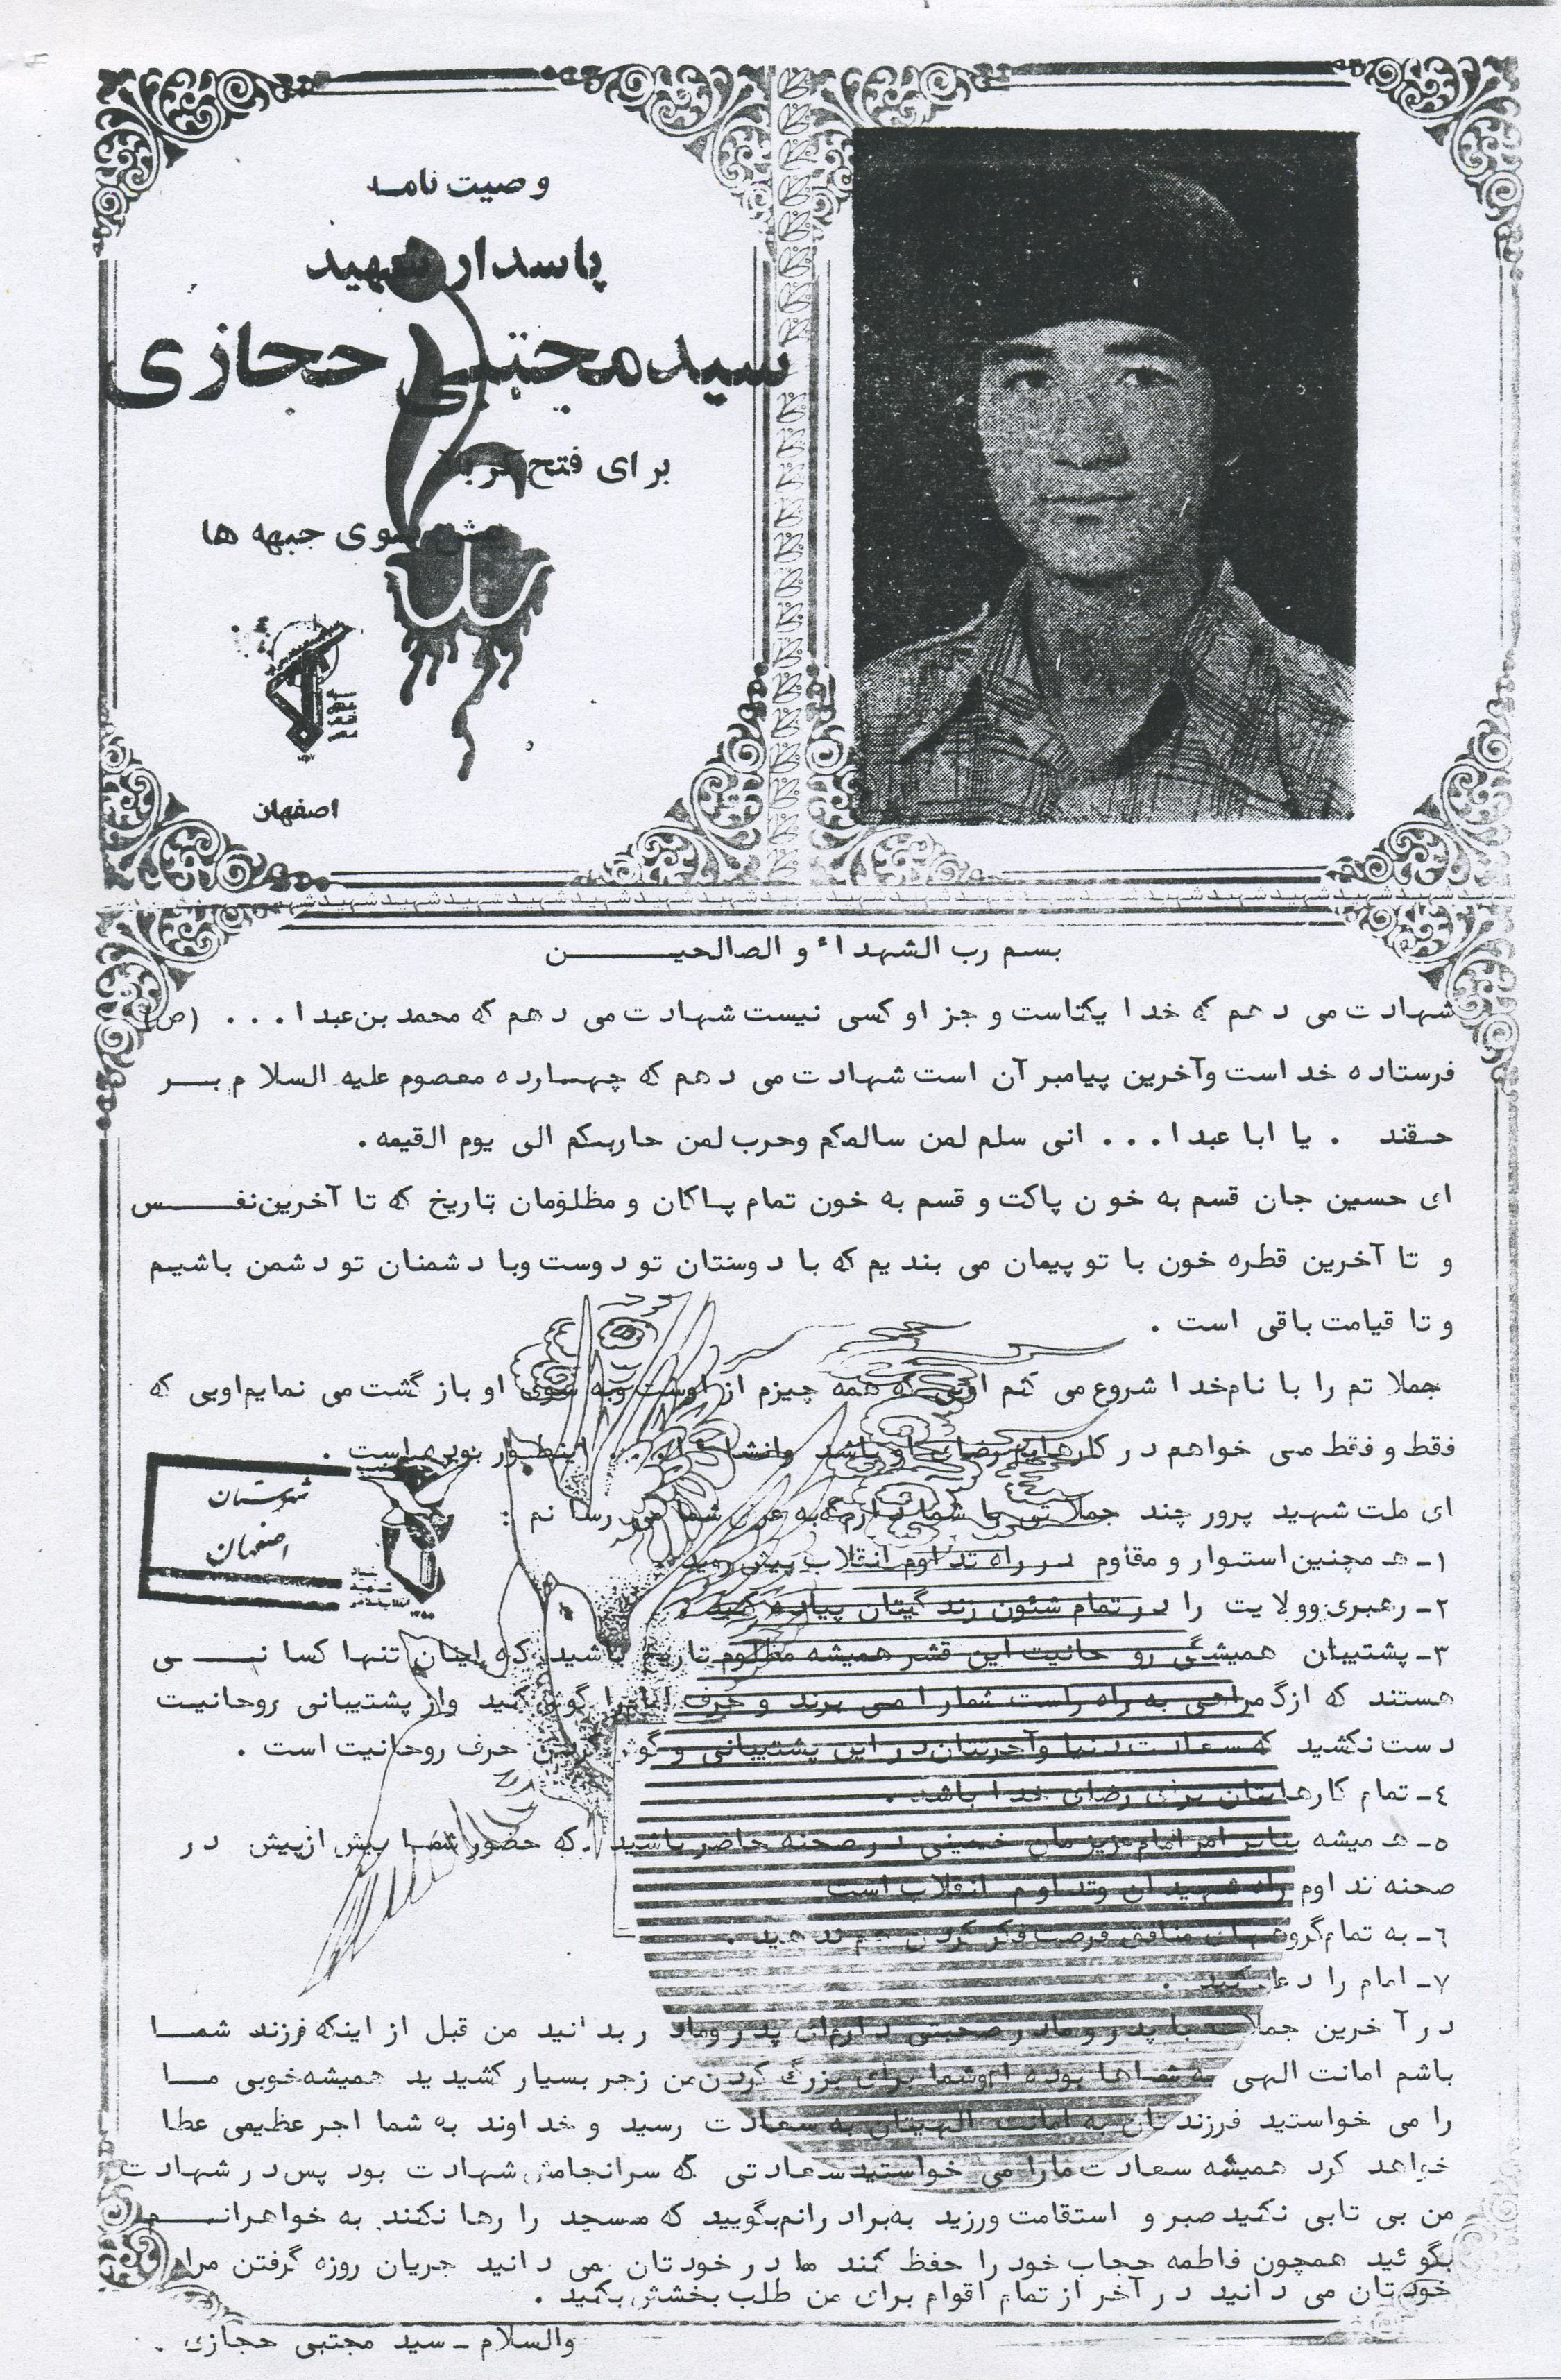 وصیت نامه
پاسدار شهید
سید مجتبی حجازی
برای فتح کربلا
بسوی جبهه ها
سپاه
پاسداران
انقلاب
اسلامی
اصفهان
شهید شهید شهید شهید شهید شهید شهید شهید شهید شهید شهید شهید
بسم رب الشهداء و الصالحین
شهادت می دهم که خدا یکتاست و جز او کسی نیست شهادت می دهم که محمد بن عبدا... (ص)
فرستاده خداست وآخرین پیامبر آن است شهادت می دهم که چهارده معصوم علیه السلام بر
حقند . یا ابا عبدا... انی سلم لمن سالمکم وحرب لمن حاربکم الی یوم القیمه.
ای حسین جان قسم به خون پاکت و قسم به خون تمام پاکان و مظلومان تاریخ که تا آخرین نفس
و تا آخرین قطره خون با تو پیمان می بندیم که با دوستان تو دوست وبا دشمنان تو دشمن باشیم
و تا قیامت باقی است .
جملاتم را با نام خدا شروع می کنم اویی که همه چیزم از اوست وبه سوی او باز گشت می نمایم اویی که
فقط و فقط می خواهم در کارهایم رضای او باشد وانشاء ا... اینطور بوده است .
ای ملت شهید پرور چند جملاتی با شما دارم که به عرض شما می رسانم :
شهرستان
اصفهان
بنیاد
شهید
انقلاب اسلامی
۱ـ همچنین استوار و مقاوم در راه تداوم انقلاب پیش روید .
۲ـ رهبری وولایت را در تمام شئون زندگیتان پیاده کنید .
۳ـ پشتیبان همیشگی روحانیت این قشر همیشه مظلوم تاریخ باشید که اینان تنها کسانی
هستند که ازگمراهی به راه راست شمارا می برند و حرف آنانرا گوش کنید واز پشتیبانی روحانیت
دست نکشید که سعادت دنیا وآخرتتان در این پشتیبانی و گوش کردن حرف روحانیت است .
٤ـ تمام کارهایتان برای رضای خدا باشد .
٥ـ همیشه بنابر امر امام عزیزمان خمینی در صحنه حاضر باشید که حضور شما بیش ازپیش در
صحنه تداوم راه شهیدان وتداوم انقلاب است
٦ـ به تمام گروههای منافق فرصت فکر کردن هم ندهید .
۷ـ امام را دعا کنید .
در آخرین جملات با پدر و مادر صحبتی دارم ای پدر ومادر بدانید من قبل از اینکه فرزند شما
باشم امانت الهی به شماها بوده ام وشما برای بزرگ کردن من زجر بسیار کشیدید همیشه خوبی ما
را می خواستید فرزندتان به امانت الهیتان به سعادت رسید و خداوند به شما اجر عظیمی عطا
خواهد کرد همیشه سعادت مارا می خواستید سعادتی که سرانجامش شهادت بود پس در شهادت
من بی تابی نکنید صبر و استقامت ورزید به برادرانم بگویید که مسجد را رها نکنند به خواهرانم
بگوئید همچون فاطمه حجاب خود را حفظ کنند مادر خودتان می دانید جریان روزه گرفتن مرا
خودتان می دانید در آخر از تمام اقوام برای من طلب بخشش بکنید .
والسلام ـ سید مجتبی حجازی .